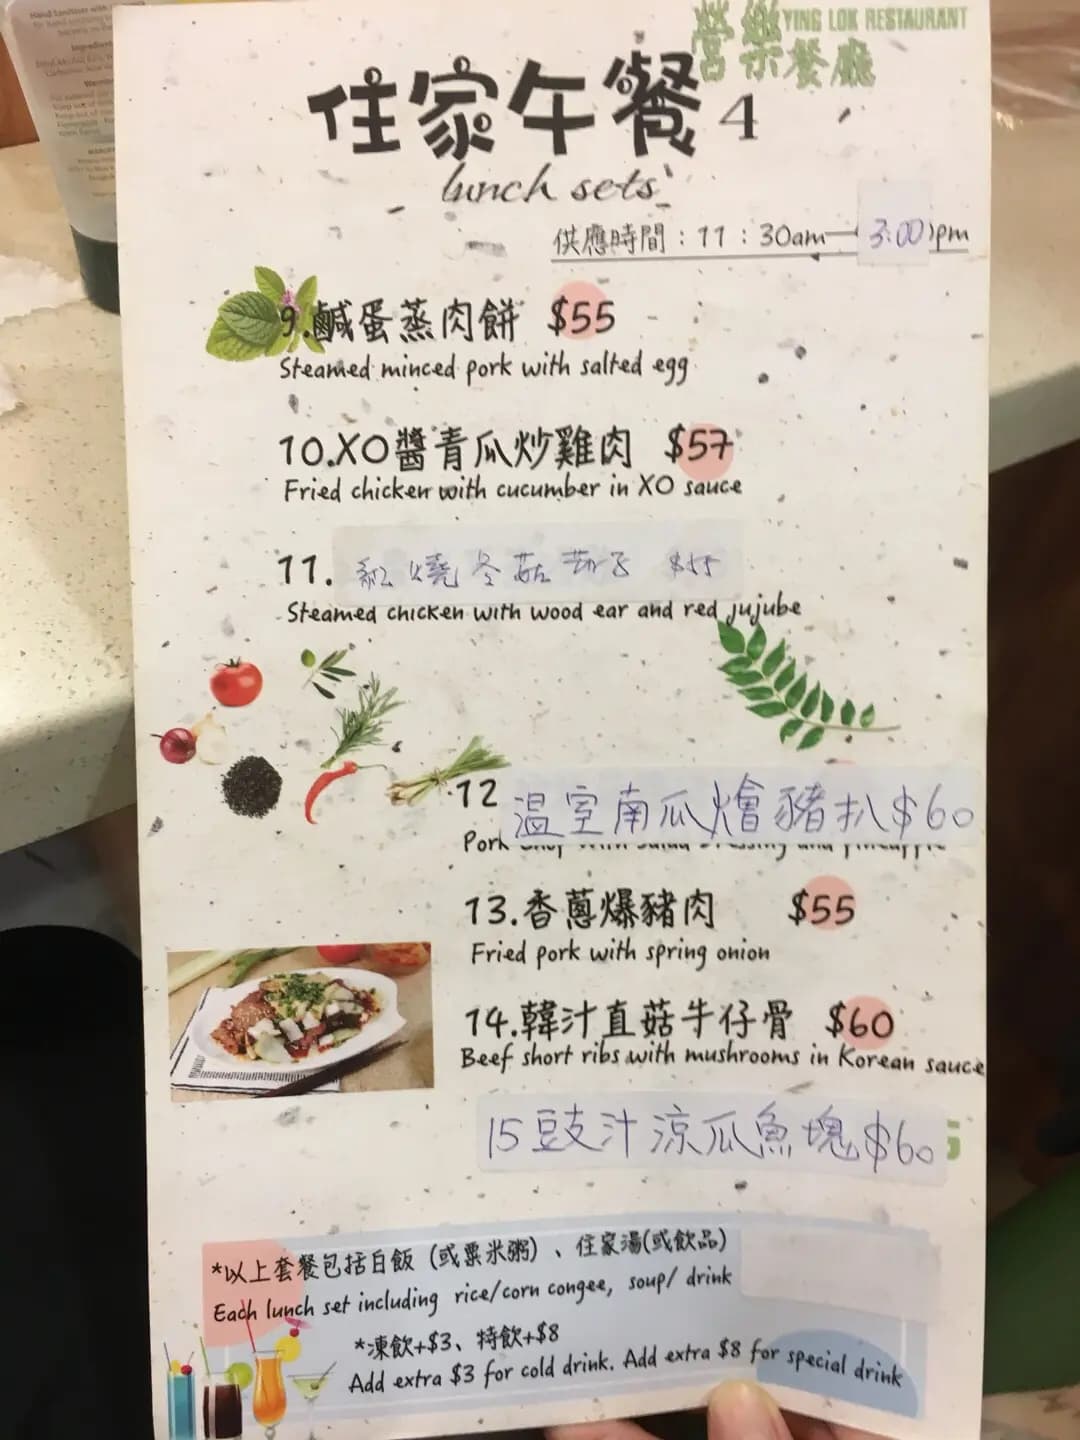 營樂 YING LOK RESTAURANT
餐廳
住家午餐 4
lunch sets
供應時間：11：30am—3:00pm
9.鹹蛋蒸肉餅 $55
Steamed minced pork with salted egg
10.XO醬青瓜炒雞肉 $57
Fried chicken with cucumber in XO sauce
11. 紅燒冬菇茄子 $55
Steamed chicken with wood ear and red jujube
12 溫室南瓜燴豬扒$60
Pork
13.香蔥爆豬肉 $55
Fried pork with spring onion
14.韓汁直菇牛仔骨 $60
Beef short ribs with mushrooms in Korean sauce
15豉汁涼瓜魚塊$60
*以上套餐包括白飯（或粟米粥）、住家湯(或飲品)
Each lunch set including rice/corn congee, soup/ drink
*凍飲+$3、特飲+$8
Add extra $3 for cold drink. Add extra $8 for special drink